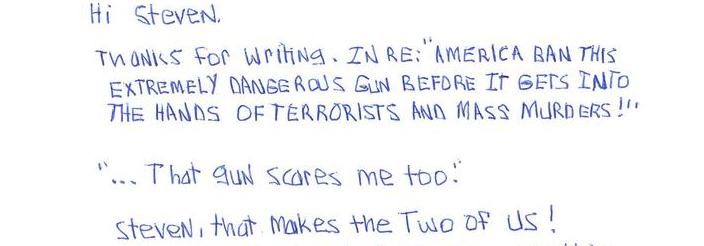 Hi Steven.
THANKS for writing. IN RE: "AMERICA BAN THIS
EXTREMELY DANGEROUS GUN BEFORE IT GETS INTO
THE HANDS OF TERRORISTS AND MASS MURDERS!"
"... That gun scares me too."
Steven, that makes the Two of us!